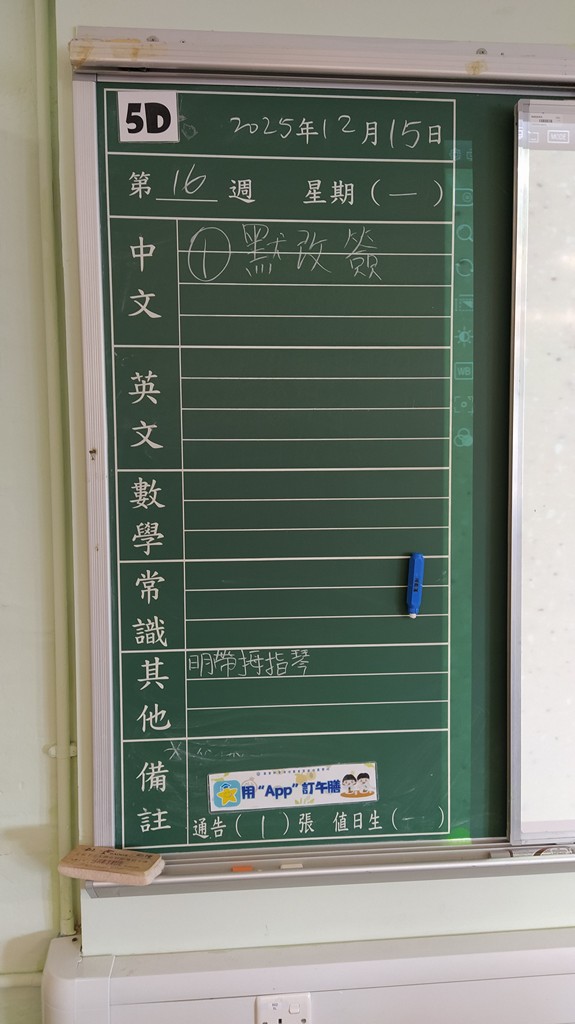 5D
2025年12月15日
第 16 週 星期(一)
中文
① 默改簽
英文
數學
常識
其他
明帶拇指琴
備註
用“App”訂午膳
通告(1)張 值日生(一)
WB